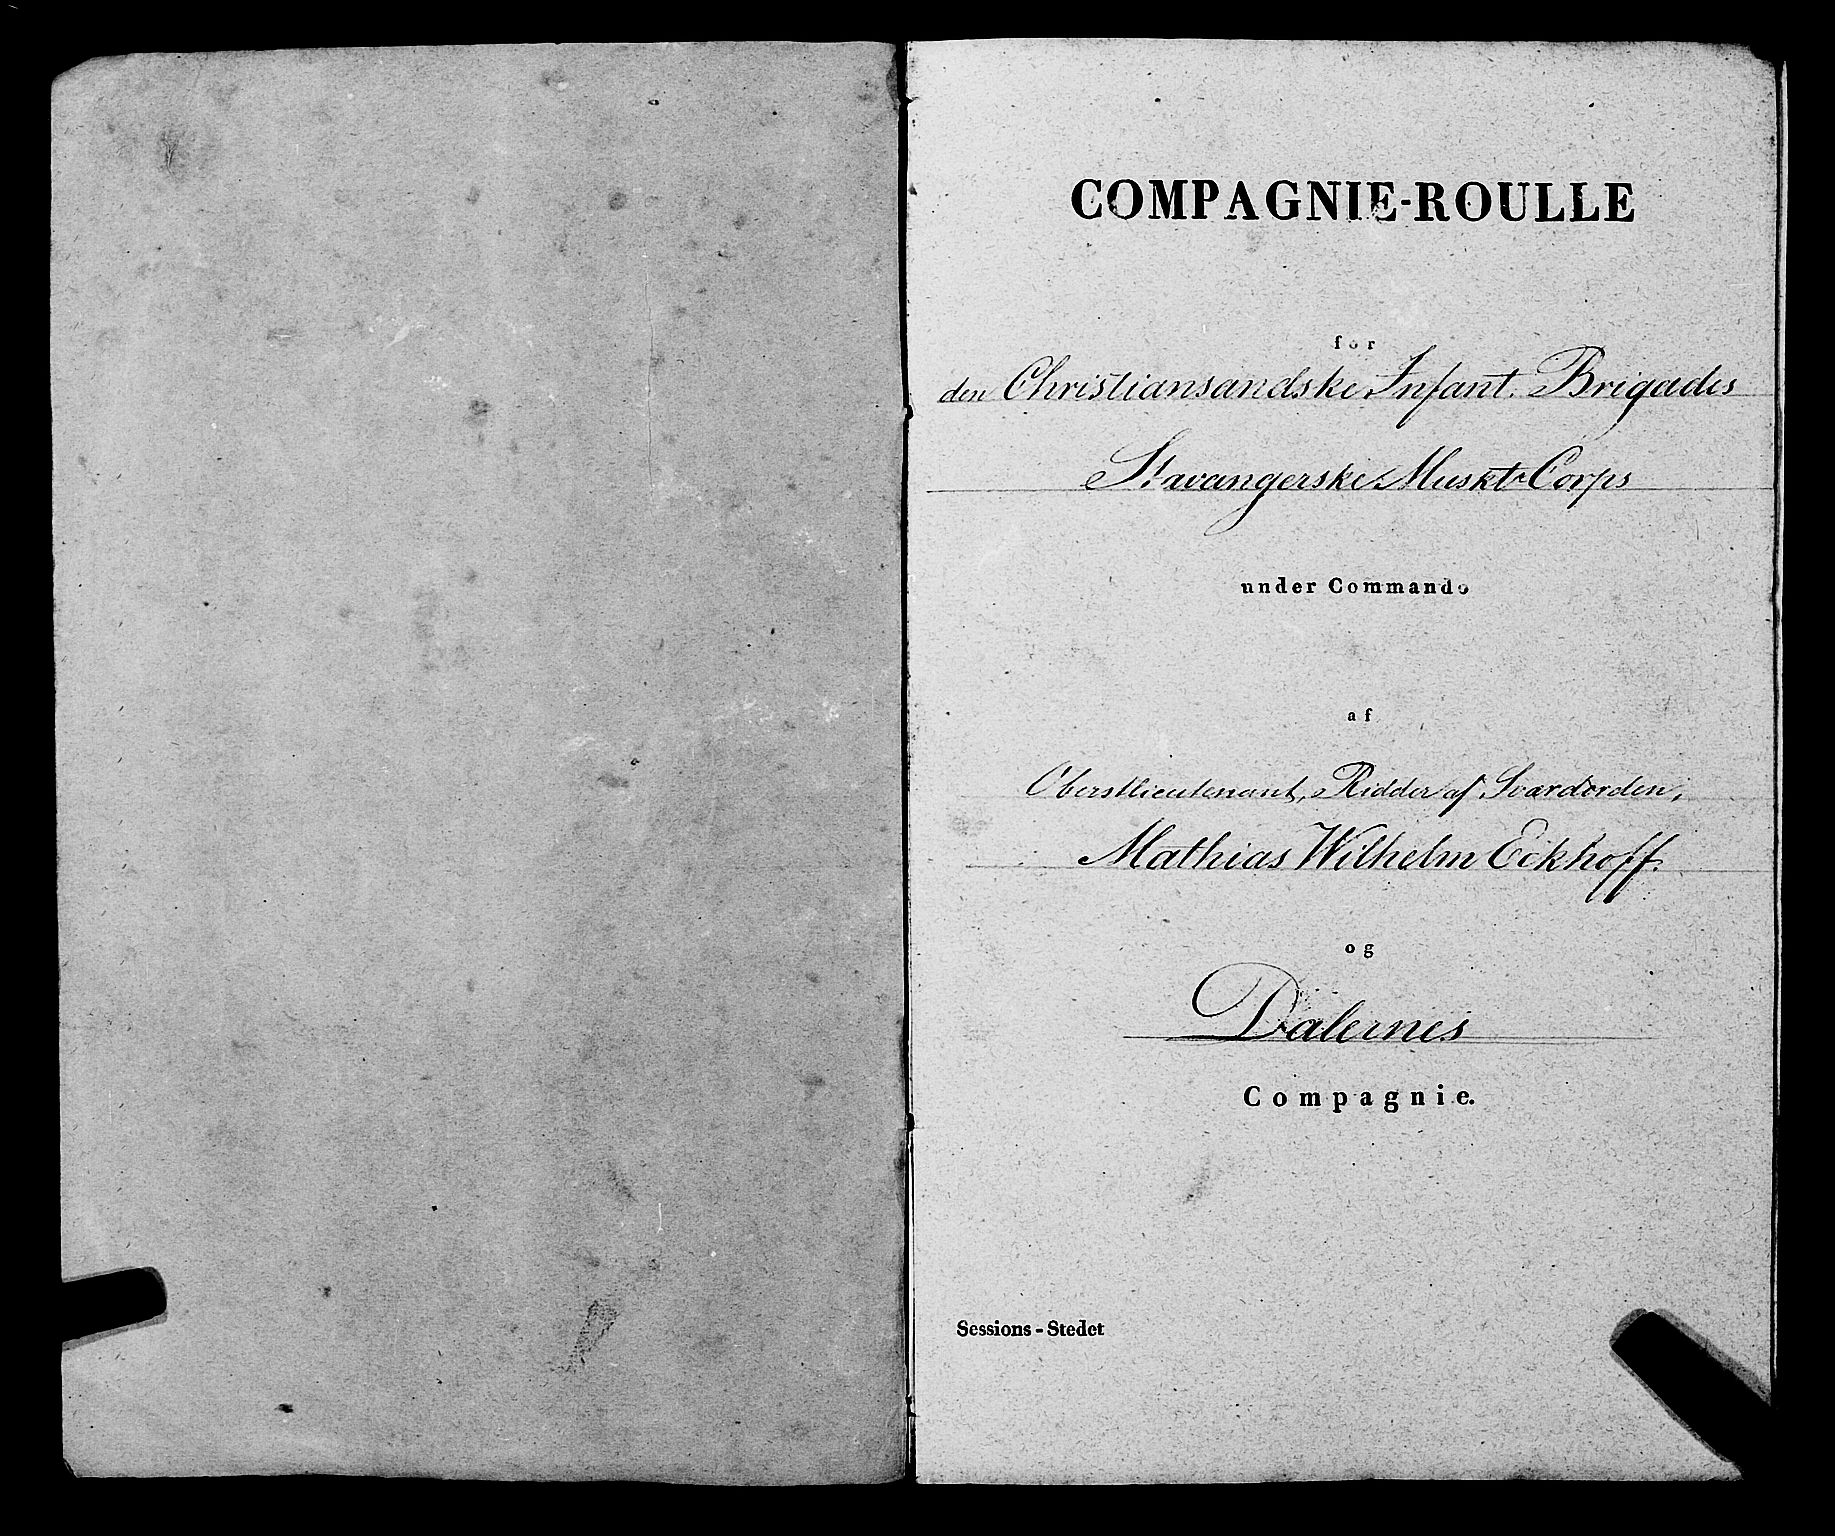 COMPAGNIE-ROULLE
for
den Christiansandske Infant. Brigades
Stavangerske Muskt. Corps
under Commando
af
Oberstlieutenant, Ridder af Sværdorden,
Mathias Wilhelm Eckhoff.
og
Dalernes
Compagnie.
Sessions-Stedet